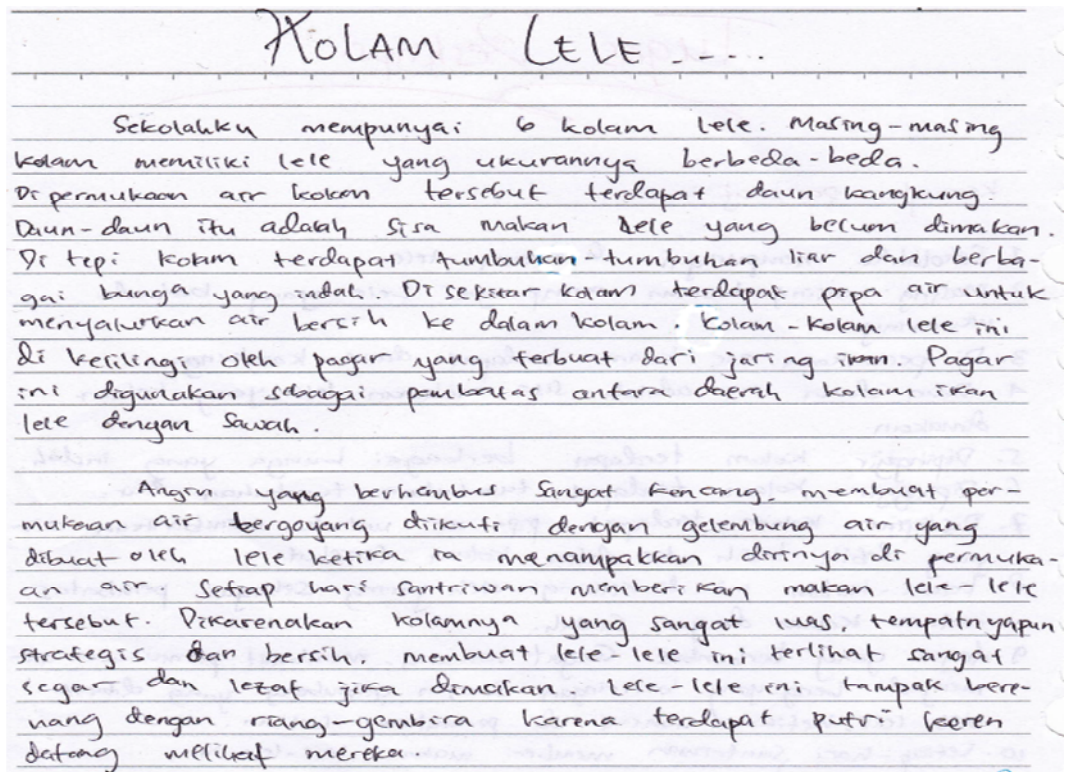 KOLAM LELE....
Sekolahku mempunyai 6 kolam lele. Masing-masing
kolam memiliki lele yang ukurannya berbeda-beda.
Di permukaan air kolam tersebut terdapat daun kangkung.
Daun-daun itu adalah sisa makan lele yang belum dimakan.
Di tepi kolam terdapat tumbuhan-tumbuhan liar dan berba-
gai bunga yang indah. Di sekitar kolam terdapat pipa air untuk
menyalurkan air bersih ke dalam kolam. Kolam-kolam lele ini
di kelilingi oleh pagar yang terbuat dari jaring ikan. Pagar
ini digunakan sebagai pembatas antara daerah kolam ikan
lele dengan sawah.
Angin yang berhembus sangat kencang membuat per-
mukaan air bergoyang diikuti dengan gelembung air yang
dibuat oleh lele ketika ia menampakkan dirinya di permuka-
an air. Setiap hari santriwan memberikan makan lele-lele
tersebut. Dikarenakan kolamnya yang sangat luas, tempatnyapun
strategis dan bersih, membuat lele-lele ini terlihat sangat
segar dan lezat jika dimakan. Lele-lele ini tampak bere-
nang dengan riang-gembira karena terdapat putri keren
datang melihat mereka.